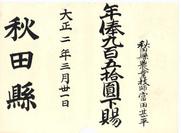 秋田縣農事技師富田甚平
年俸九百五拾圓下賜
大正二年三月廿一日
秋田縣